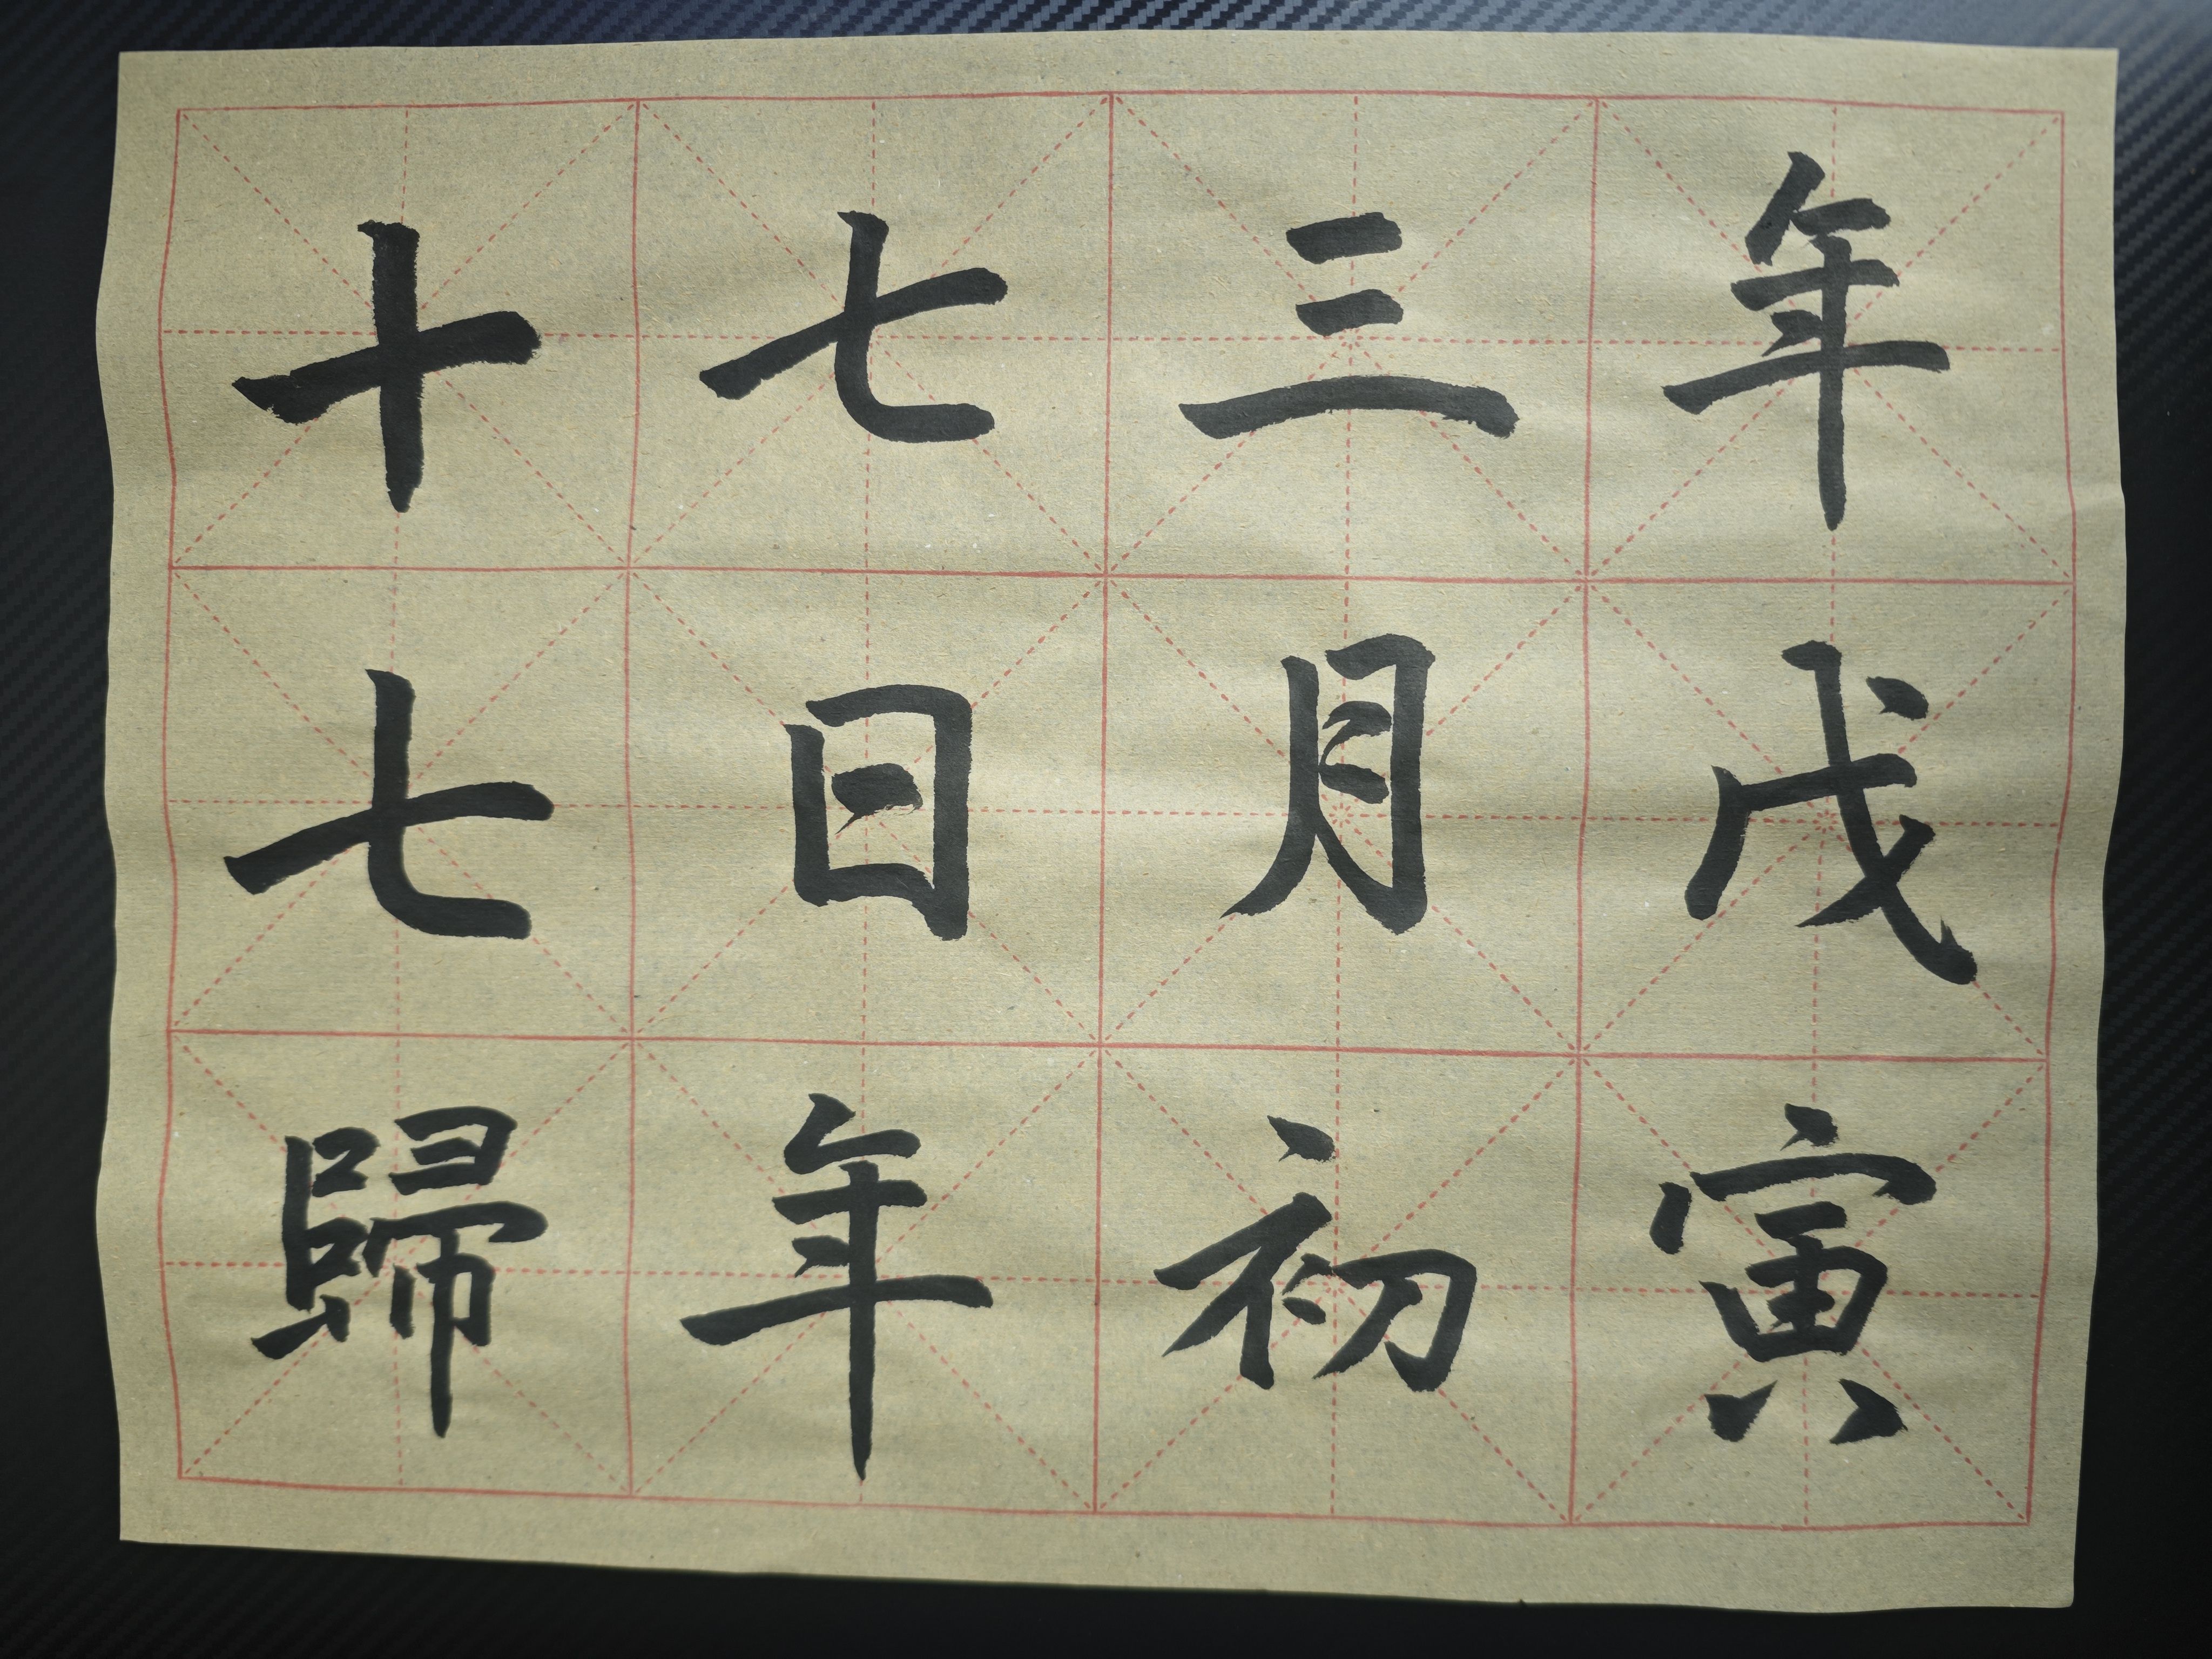 年戊寅
三月初
七日年
十七歸